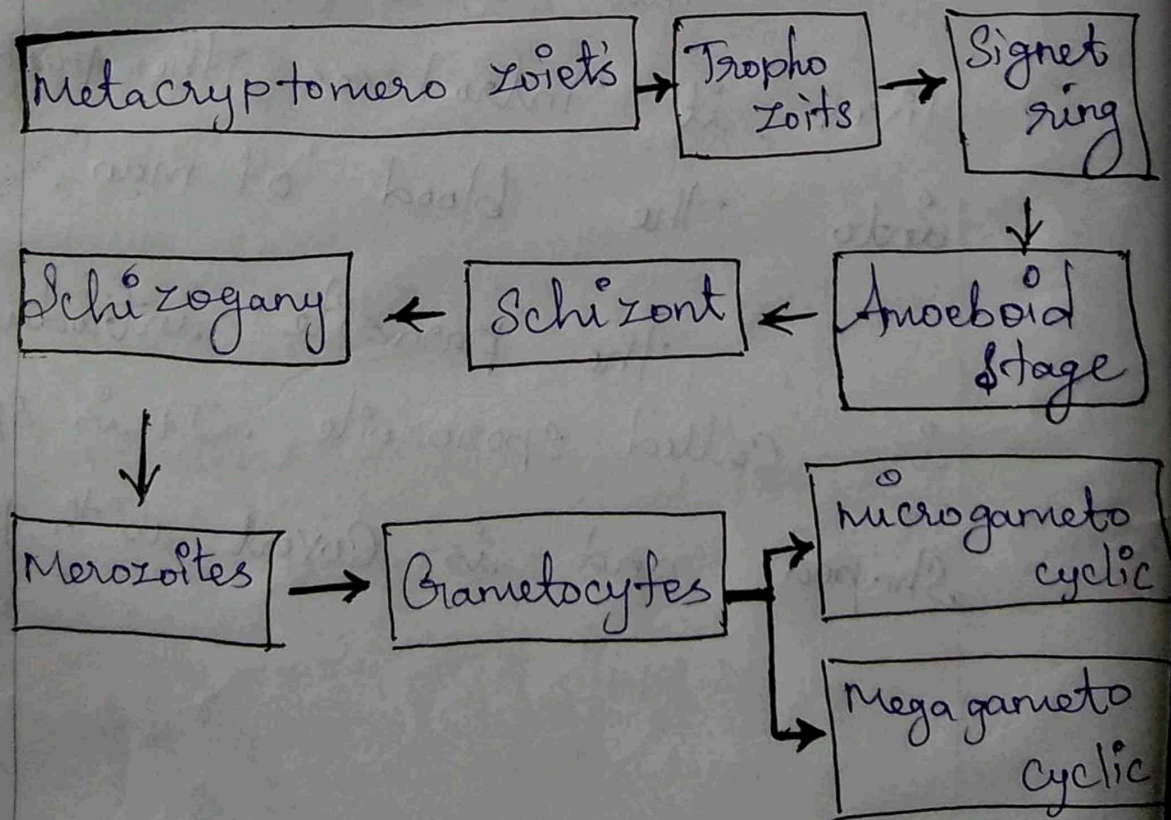 Metacryptomero zoiets
Tropho
zoits
Signet
ring
Amoeboid
Stage
Schizont
Schizogany
Merozoites
Gametocytes
Microgameto
cyclic
Mega gameto
cyclic